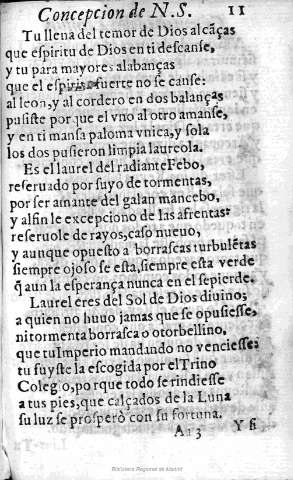 Concepcion de N.S. 11
Tu llena del temor de Dios alcãças
que espiritu de Dios en ti descanse,
y tu para mayores alabanças
que el espiritu fuerte no se canse:
al leon, y al cordero en dos balanças
pusiste porque el vno al otro amanse,
y en ti mansa paloma vnica, y sola
los dos pusieron limpia laureola.
Es el laurel del radiante Febo,
reseruado por suyo de tormentas,
por ser amante del galan mancebo,
y alfin le excepciono de las afrentas:
reseruole de rayos, caso nueuo,
y aunque opuesto a borrascas turbulẽtas
siempre ojoso se esta, siempre esta verde
q̃ aun la esperança nunca en el se pierde.
Laurel eres del Sol de Dios diuino;
a quien no huuo jamas que se opusiesse,
ni tormenta borrasca o otorbellino,
que tu Imperio mandando no venciesse:
tu fuyste la escogida por el Trino
Colegio, porque todo se rindiesse
a tus pies, que calçados de la Luna
su luz se prosperò con su fortuna.
A 13 Y si
Biblioteca Regional de Madrid